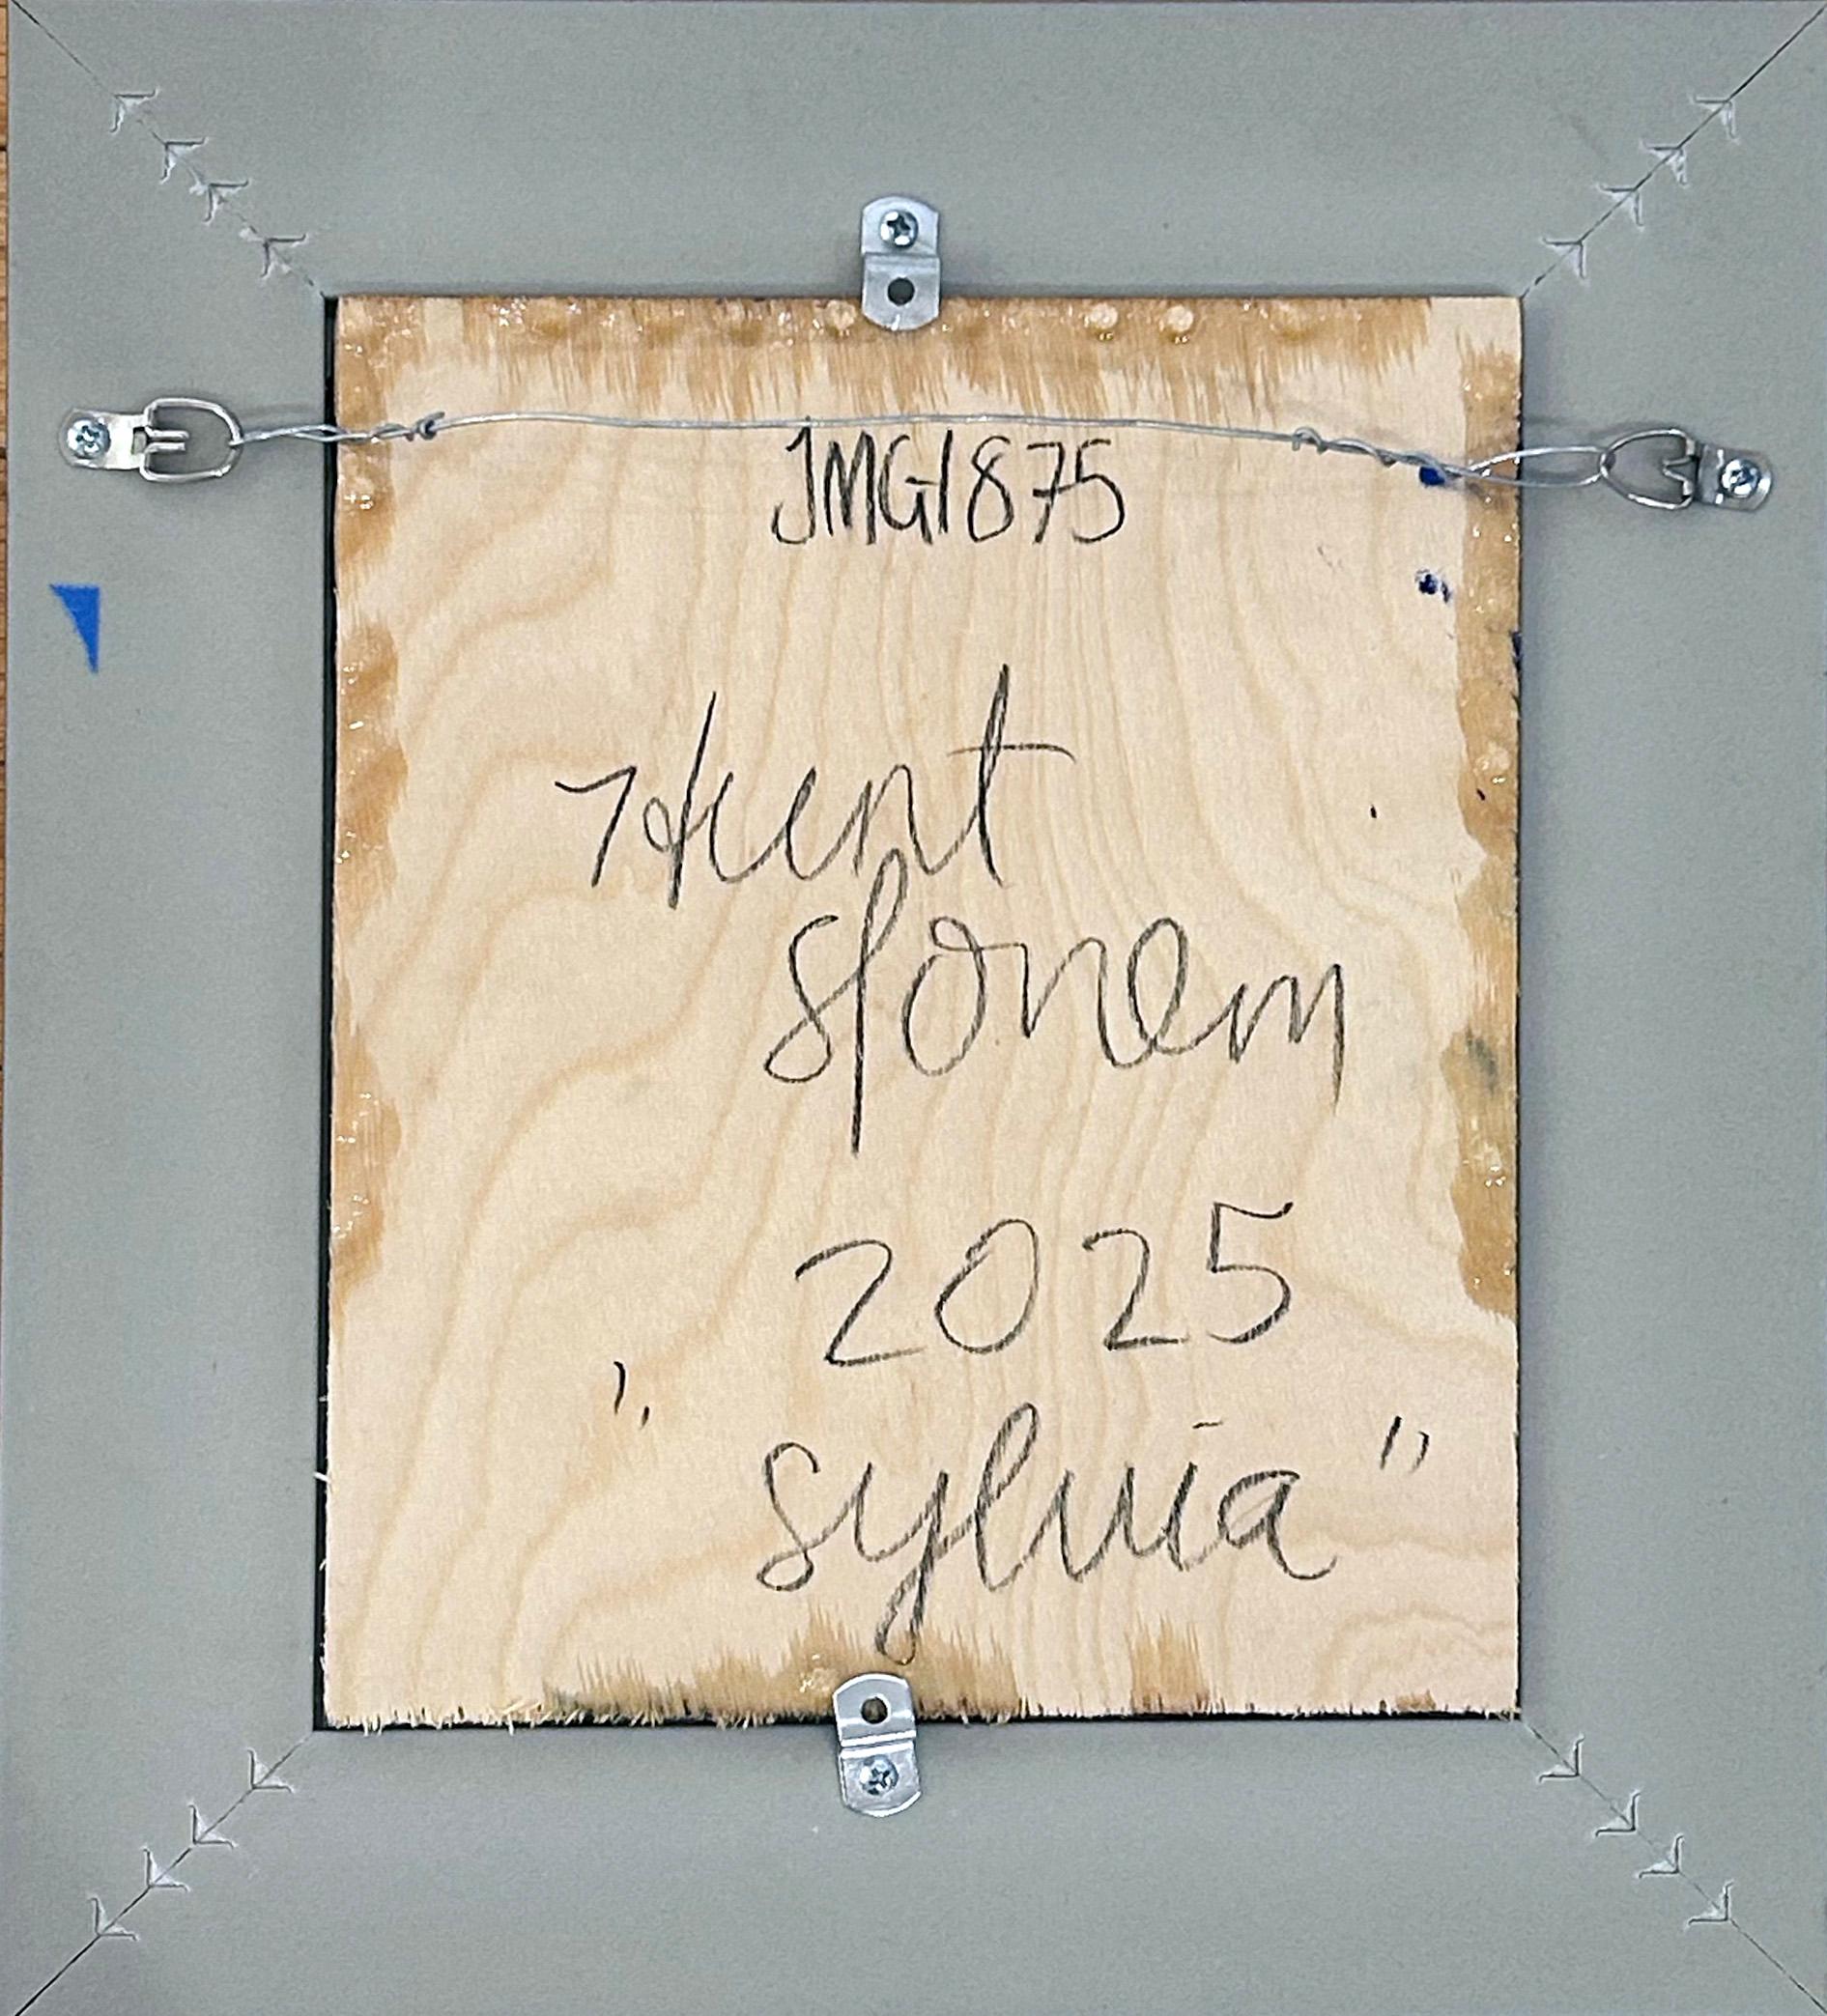 JMG1875
Hunt
Slonem
2025
"Sylvia"